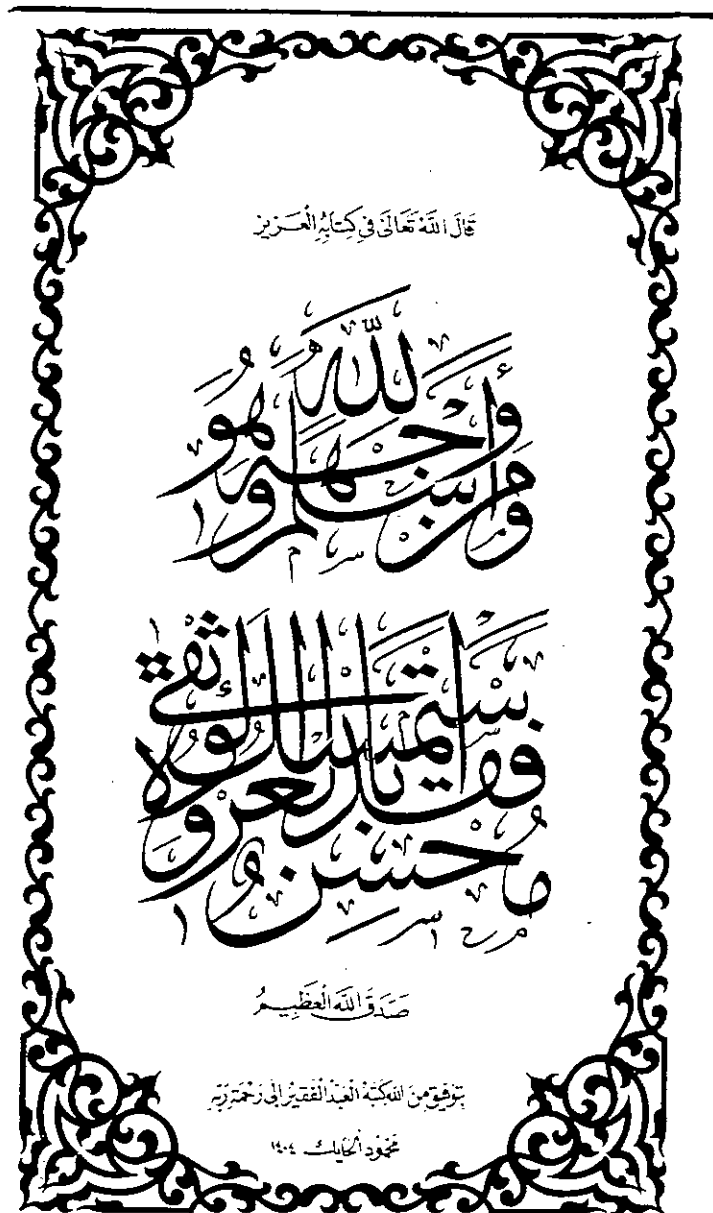 قَالَ اللَّهُ تَعَالَىٰ فِي كِتَابِهِ الْعَزِيزِ
ومن أسلم وجهه لله وهو
محسن فقد استمسك بالعروة الوثقى
صَدَقَ اللَّهُ الْعَظِيمُ
بتوفيق من الله كتبه العبد الفقير إلى رحمة ربه
محمود الحايك ١٤٠٤